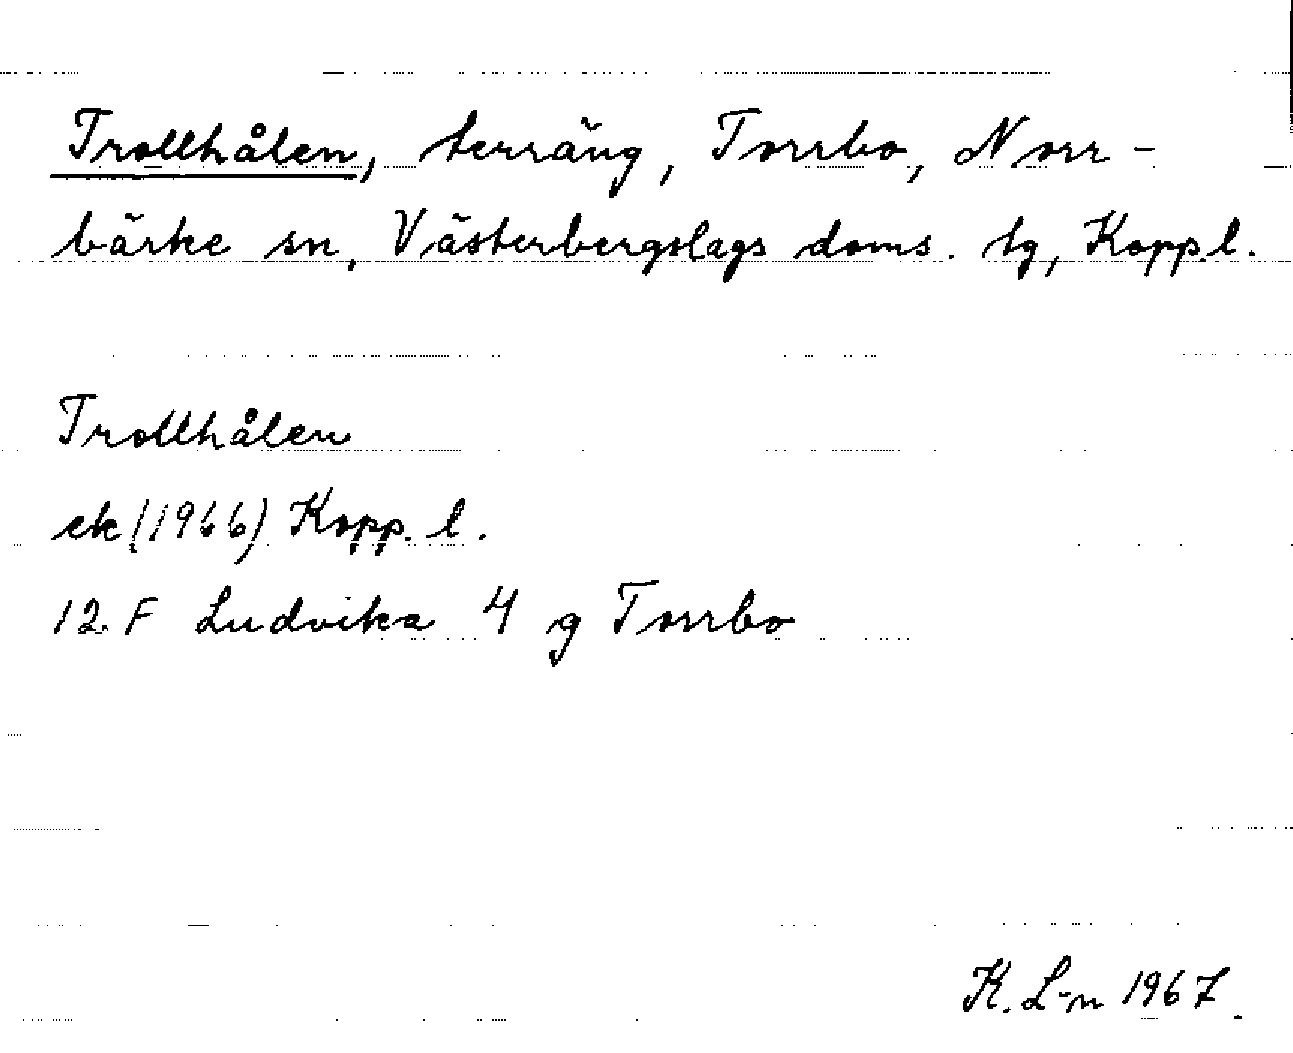 Trollhålen, terräng, Torrbo, Norr-
bärke sn, Västerbergslags doms. tg, Kopp.l.
Trollhålen
ek (1966) Kopp. l.
12 F Ludvika 4 g Torrbo
K. L-n 1967.